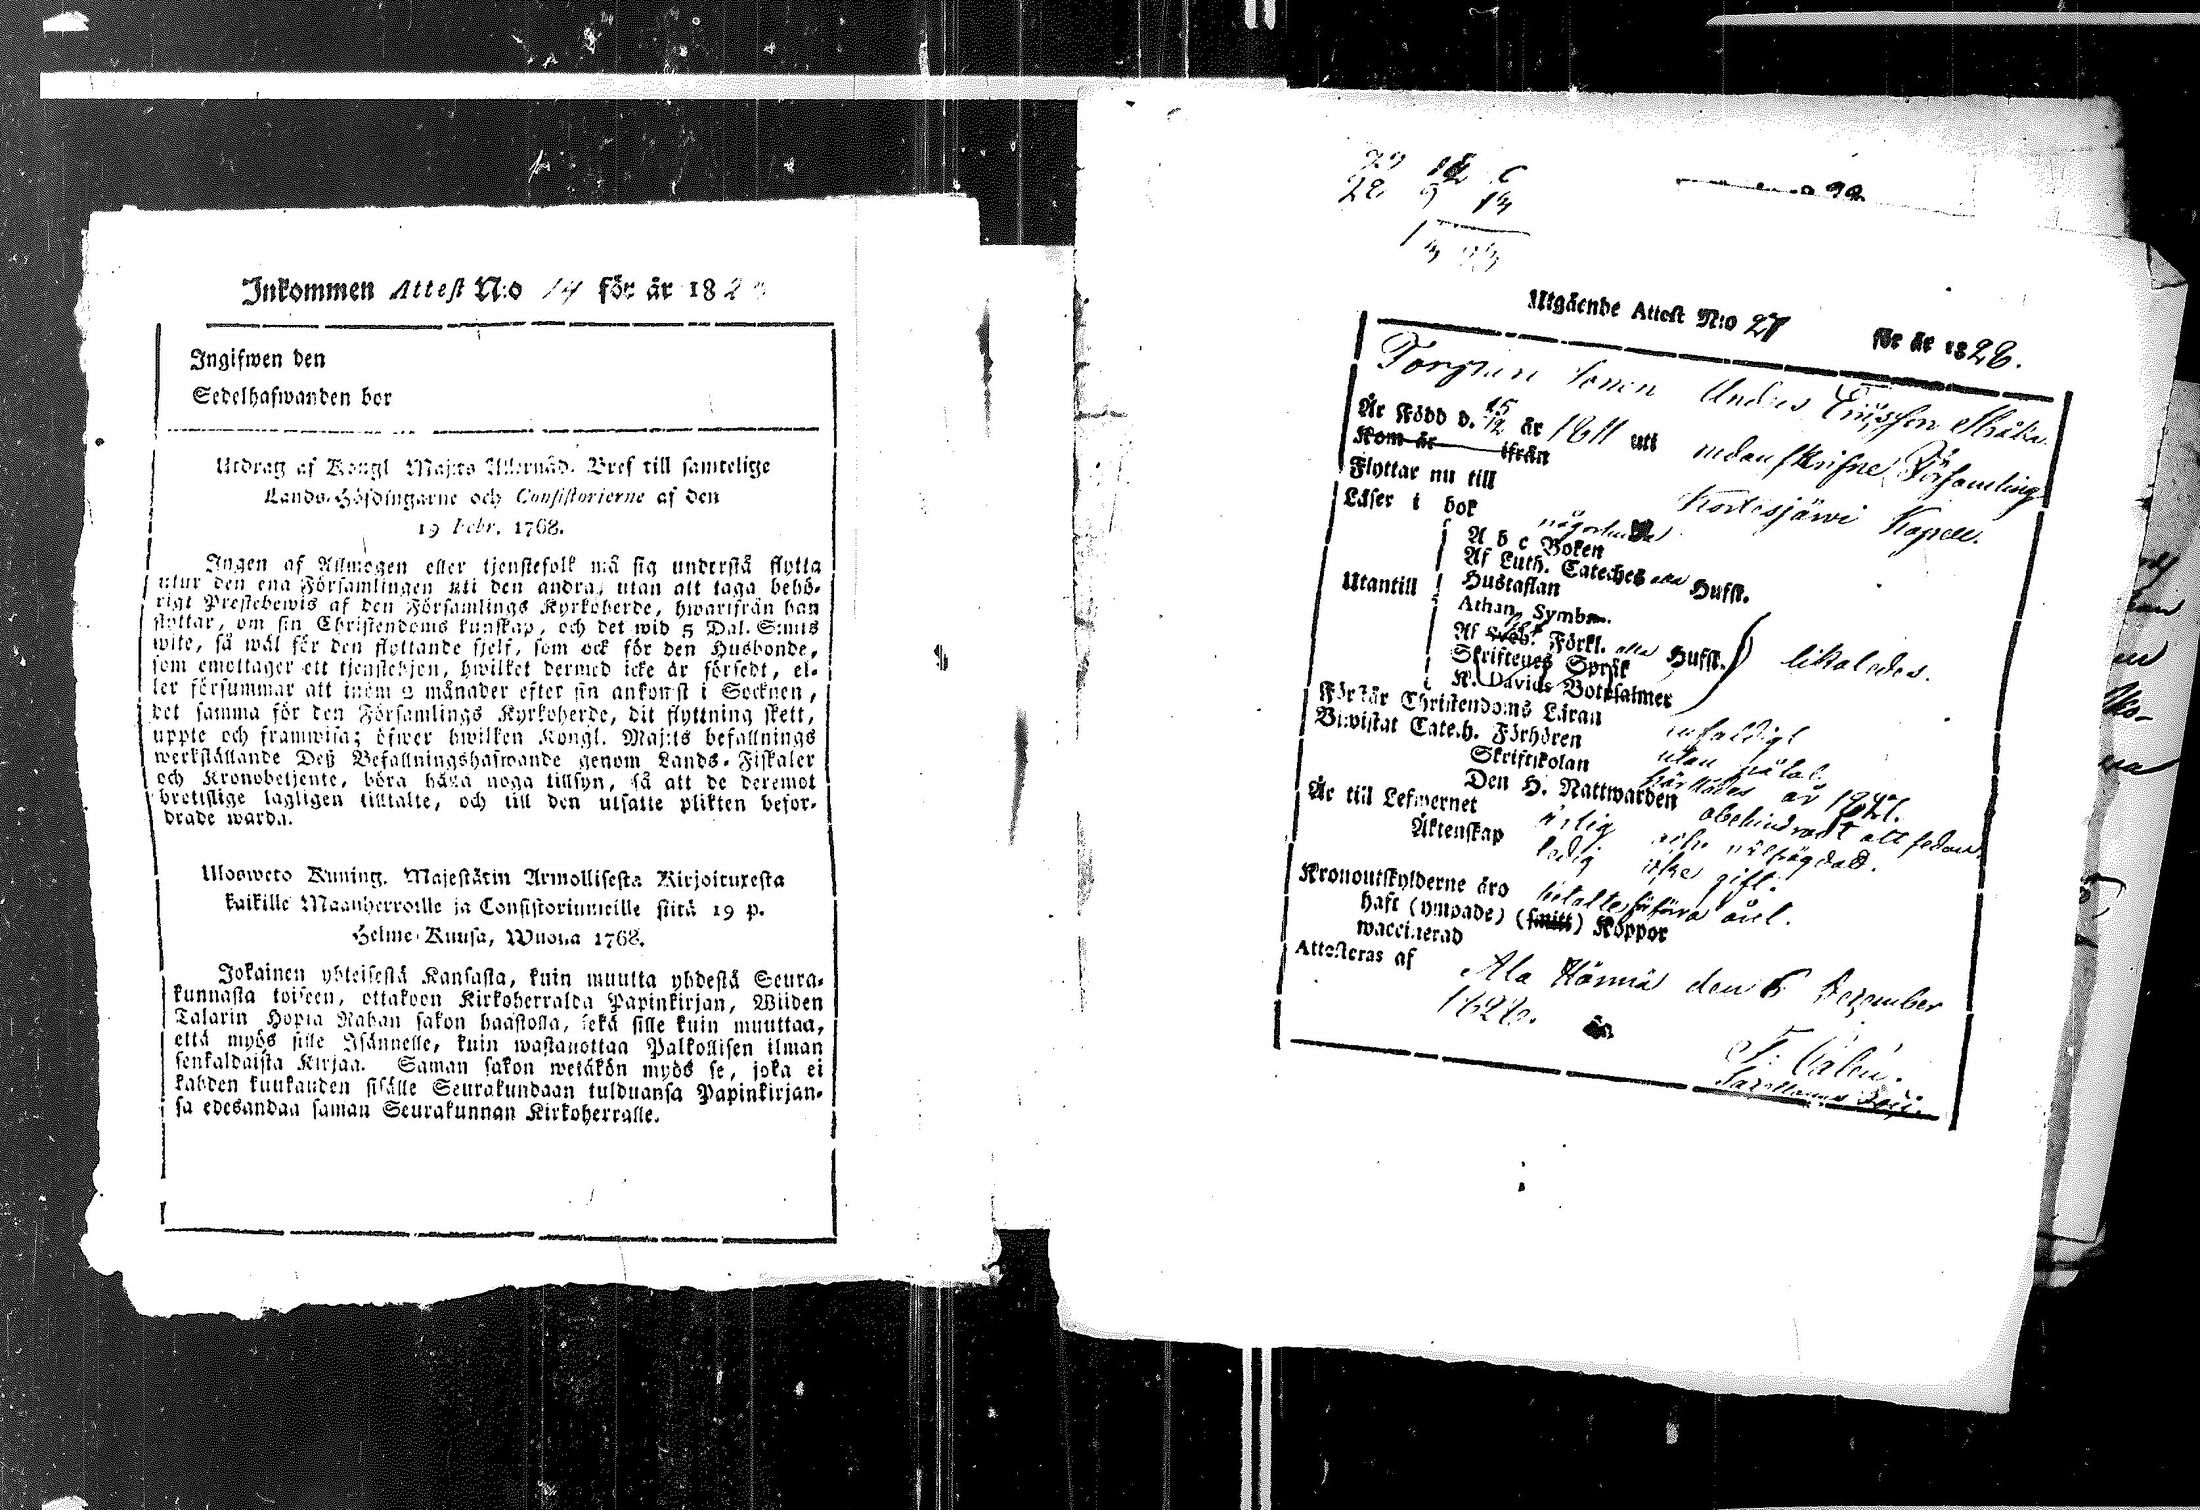 Inkommen Attest N:o 14 för år 182
Ingifwen den
Sedelhafwanden bor
Utdrag af Kongl Maj:ts Allernåd. Bref till samtelige
Lands-Höfdingarne och Consistorierne af den
19 Febr. 1768.
Ingen af Allmogen eller tjenstefolk må sig understå flytta
utur den ena Församlingen uti den andra, utan att taga behö-
rigt Prestebewis af den Församlings Kyrkoherde, hwarifrån han
flyttar, om sin Christendoms kunskap, och det wid 5 Dal. S:mts
wite, så wäl för den flyttande sjelf, som ock för den Husbonde,
som emottager ett tjenstehjon, hwilket dermed icke är försedt, el-
ler försummar att inom 2 månader efter sin ankomst i Socknen,
det samma för den Församlings Kyrkoherde, dit flyttning skett,
uppte och framwisa; öfwer hwilken Kongl. Maj:ts befallnings
werkställande Deß Befallningshafwande genom Lands-Fiskaler
och Kronobetjente, böra hafwa noga tillsyn, så att de deremot
brottslige lagligen tilltalte, och till den utsatte plikten befor-
drade warda.
Ulosweto Kuning. Majestätin Armollisesta Kirjoituxesta
kaikille Maanherroille ja Consistoriumeille siitä 19 p.
Helme-Kuusa, Wuonna 1768.
Jokainen yhteisestä Kansasta, kuin muutta yhdestä Seura-
kunnasta toiseen, ottakoon Kirkoherralda Papinkirjan, Wiiden
Talarin Hopia Rahan sakon haastolla, sekä sille kuin muuttaa,
että myös sille Isännelle, kuin wastanottaa Palkollisen ilman
senkaldaista Kirjaa. Saman sakon wetäkön myös se, joka ei
kahden kuukauden sisälle Seurakundaan tulduansa Papinkirjan-
sa edesandaa saman Seurakunnan Kirkoherralle.
Utgående Attest N:o 27 för år 1828.
Torpare sonen Andres Ersson
Är Född d. 15/12 år 1811 uti nedanskrifne Församling
Kom år ifrån
Flyttar nu till Kortesjärwi Kapell.
Läser i bok någorlunda
A b c Boken
Af Luth. Cateches alla Hufst.
Utantill Hustaflan
Athan. Symb.
Af Förkl. alla Hufst. likaledes.
Skriftenes Språk
K. Davids Botpsalmer
Förstår Christendoms Läran enfaldigt
Biwistat Catech. Förhören utan påtal.
Skriftskolan
Den H. Nattwarden obehindradt allt sedan.
Är till Lefwernet ärlig och wälfrägdad.
Äktenskap ledig icke gift.
Kronoutskylderne äro betalte för förra året.
haft (ympade) Koppor
waccinerad
Attesteras af Ala Härmä den 6 December
1828.